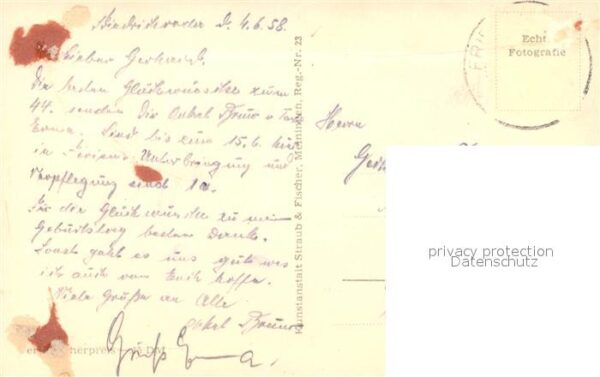 d. 4.6.58.
Lieber Gerhard.
Die besten Glückwünsche zum
44. senden Dir Onkel Bruno u. Tante
Erna. Sind bis zum 15.6. hier
in Ferien. Unterbringung und
Verpflegung sind 1a.
Für die Glückwünsche zu mein
Geburtstag besten Dank.
Sonst geht es uns gut was
ich auch von Euch hoffe.
Viele Grüße an Alle
Onkel Bruno
Gruß Erna
Kunstanstalt Straub & Fischer, Meiningen, Reg.-Nr. 23
Echt
Fotografie
Herrn
privacy protection
Datenschutz